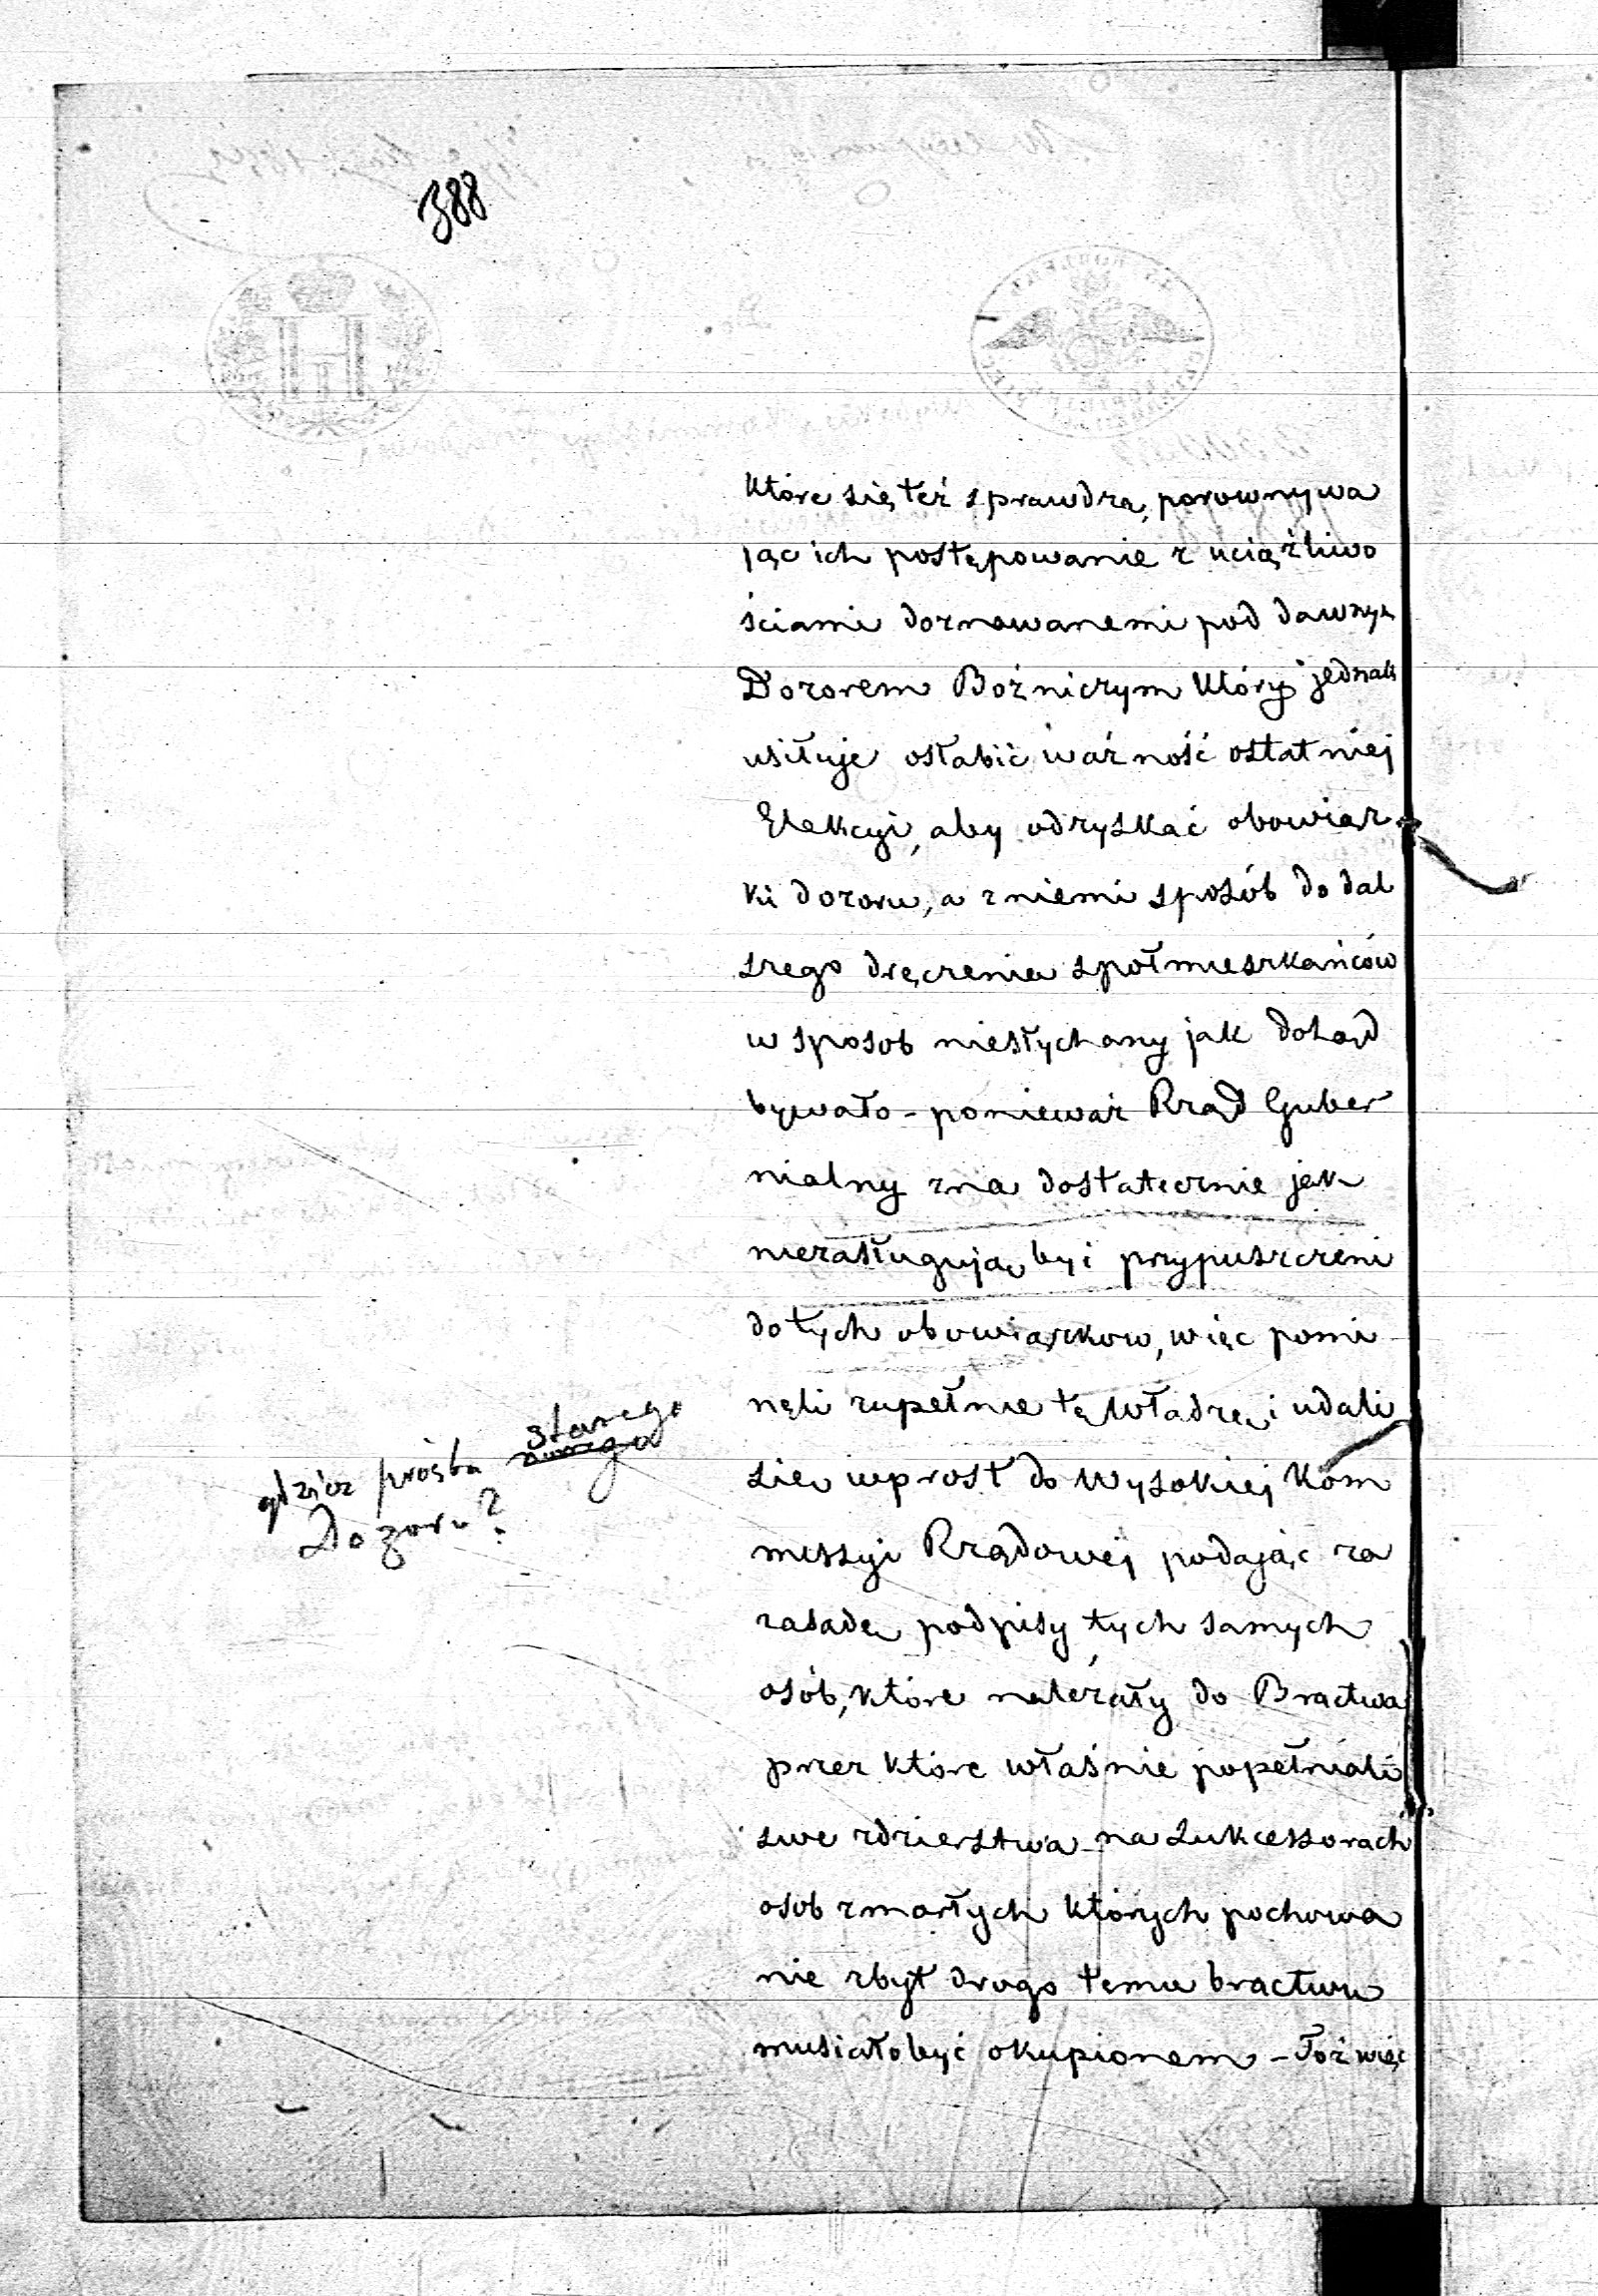 388
które się też sprawdzą, porownywa
jąc ich postępowanie z uciążliwo
ściami doznawanemi pod dawnym
Dozorem Bożniczym który jednak
usiłuje osłabić ważność ostatniej
Elekcyi, aby odzyskać obowiąz
ki dozoru, a z niemi sposób do dal
szego dręczenia społmieszkańców
w sposob niesłychany jak dotąd
bywało - ponieważ Rząd Guber
nialny zna dostatecznie jak
niezasługują być przypuszczeni
do tych obowiązkow, więc pomi
nęli zupełnie tę Władzę i udali
się wprost do Wysokiej Kom
missyi Rządowej podając za
zasadę podpisy tych samych
osób, które należały do Bractwa
przez które właśnie popełniali
swe zdzierstwa na Sukcessorach
osob zmarłych których pochowa
nie zbyt drogo temu bractwu
musiało być okupionem - Toż więc
starego
gdzież prośba
Dozoru?